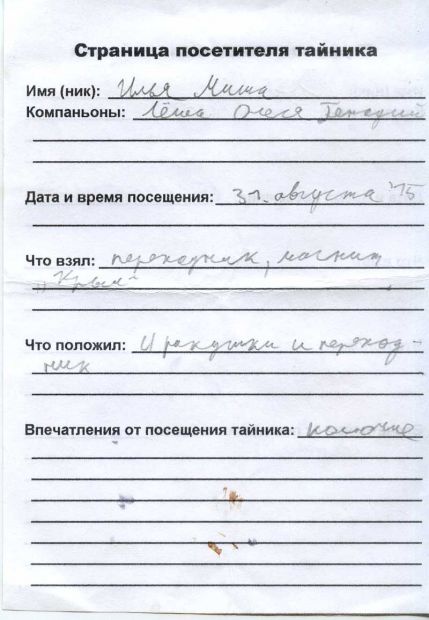 Страница посетителя тайника
Имя (ник): Илья Миша
Компаньоны: Лёша Олеся Генадий
Дата и время посещения: 31. августа '15
Что взял: переходник, магнит
"Крым"
Что положил: ракушки и переход-
ник
Впечатления от посещения тайника: колючие